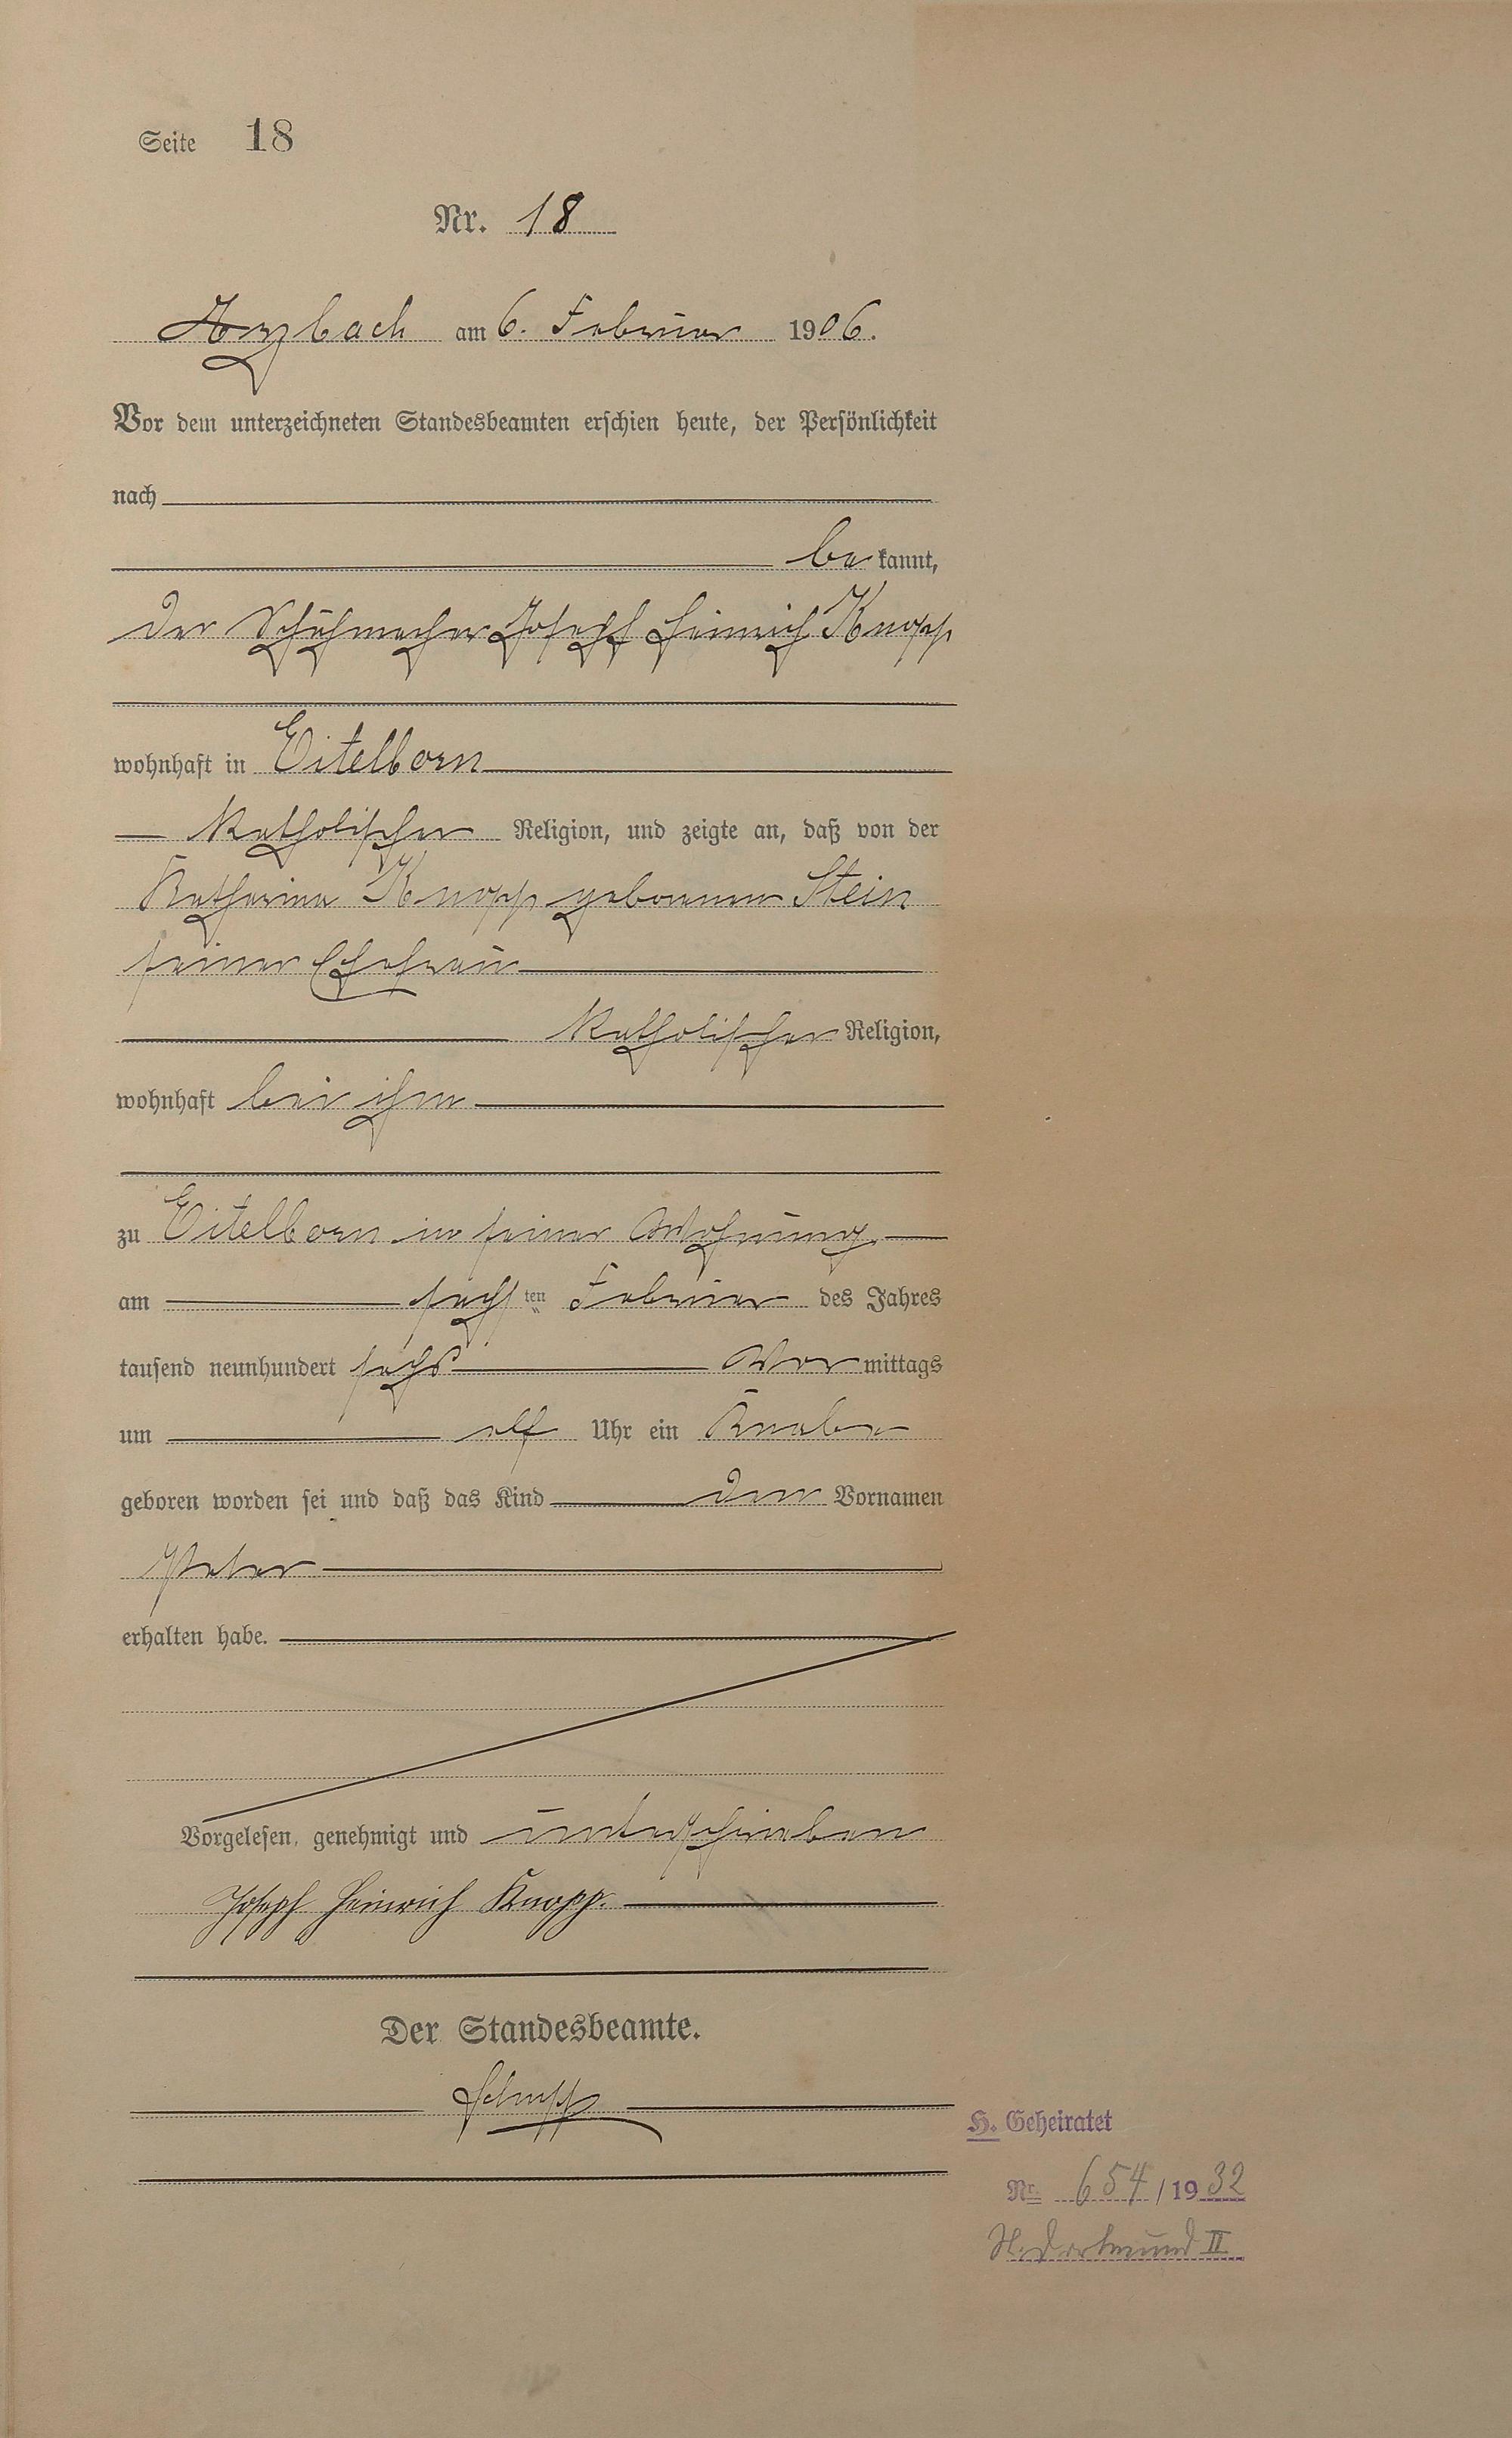 Seite 18
Nr. 18
Arzbach am 6. Februar 1906.
Vor dem unterzeichneten Standesbeamten erschien heute, der Persönlichkeit
nach
be kannt,
der Schuhmacher Joseph Heinrich Knopp
wohnhaft in Eitelborn
katholischer Religion, und zeigte an, daß von der
Katharina Knopp geborenen Stein
seiner Ehefrau
katholischer Religion,
wohnhaft bei ihm
zu Eitelborn in seiner Wohnung
am sechsten Februar des Jahres
tausend neunhundert sechs Vormittags
um elf Uhr ein Knabe
geboren worden sei und daß das Kind den Vornamen
Peter
erhalten habe.
Vorgelesen, genehmigt und unterschrieben
Joseph Heinrich Knopp.
Der Standesbeamte.
Schupp
H. Geheiratet
Nr. 654/1932
Dortmund II